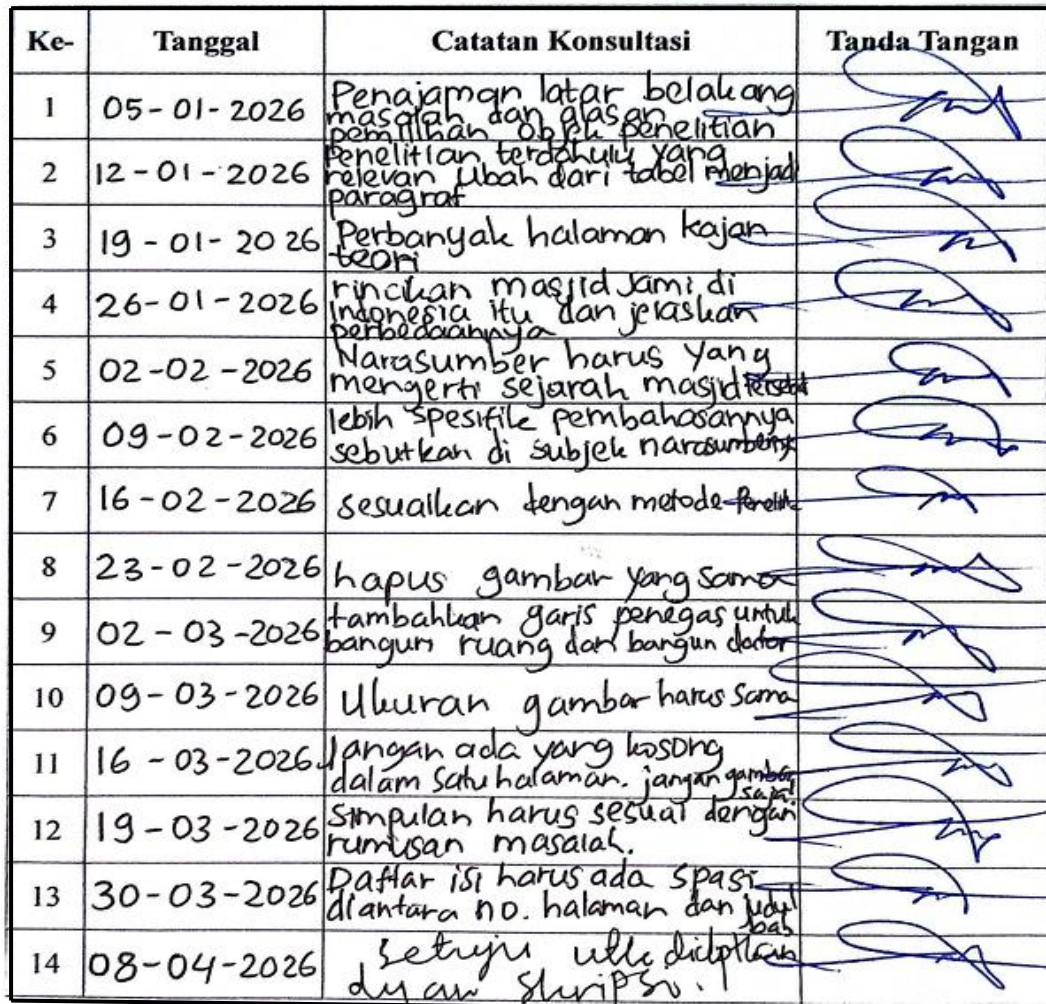 Ke- Tanggal Catatan Konsultasi Tanda Tangan
1 05-01-2026 Penajaman latar belakang
masalah dan alasan
pemilihan objek penelitian
2 12-01-2026 Penelitian terdahulu yang
relevan ubah dari tabel menjadi
paragraf
3 19-01-2026 Perbanyak halaman kajan
teori
4 26-01-2026 rincikan masjid Jami di
Indonesia itu dan jelaskan
perbedaannya
5 02-02-2026 Narasumber harus yang
mengerti sejarah masjid tersebut
6 09-02-2026 lebih spesifik pembahasannya
sebutkan di subjek narasumbernya
7 16-02-2026 sesuaikan dengan metode
8 23-02-2026 hapus gambar yang sama
9 02-03-2026 tambahkan garis penegas untuk
bangun ruang dan bangun datar
10 09-03-2026 Ukuran gambar harus sama
11 16-03-2026 Jangan ada yang kosong
dalam satu halaman. jangan gambar
saja!
12 19-03-2026 Simpulan harus sesuai dengan
rumusan masalah.
13 30-03-2026 Daftar isi harus ada spasi
diantara no. halaman dan judul
bab
14 08-04-2026 setuju utk
skripsi.